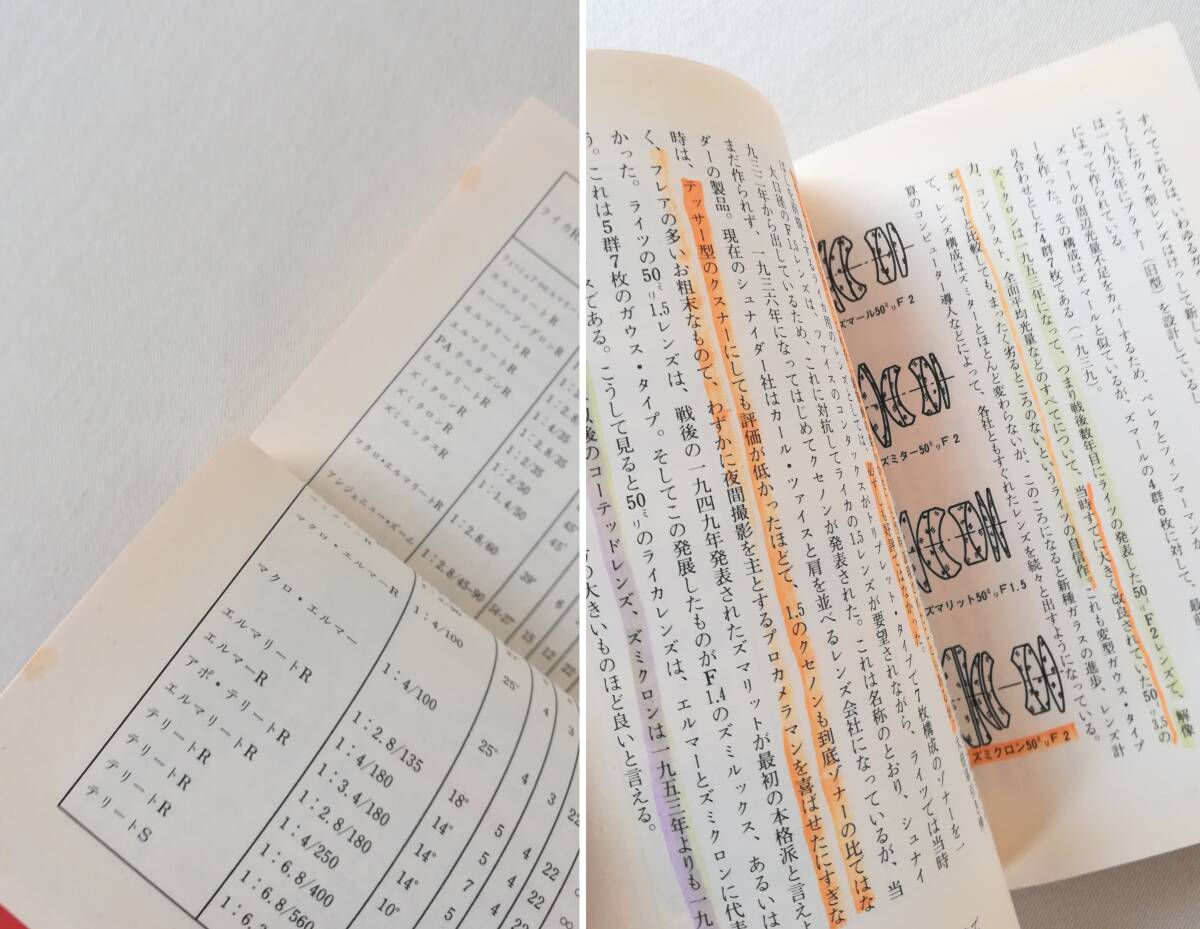 ライカR
エルマリートR
スーパーアンギュロンR
エルマリートR
PAクルタゴンR
エルマリートR
ズミクロンR
ズミルックスR
マクロ・エルマリートR
アンジェニュー・ズーム
1:2.8/35
1:2/35
1:2/50
1:1.4/50
1:2.8.60
1:2.8/45-90
45°
39°
15
12
22
マクロ・エルマーR 1:4/100
マクロ・エルマー 1:4/100 25° 4 3
エルマリートR 1:2.8/135 25° 4 3 22
エルマーR 1:4/180 18° 5 4
アポ・テリートR 1:3.4/180 14° 5 4 22
エルマリートR 1:2.8/180 14° 7 4 22
テリートR 1:4/250 14° 5 4 22
テリートR 1:6.8/400 10°
テリートR 1:6.8/560
テリートS
すべてこれらは、いわゆるガ
こうしたガウス型レンズはけっして新し
は一八九六年にプラナー（旧型）を設計している。
によって作られている。
ズマールの周辺光量不足をカバーするため、ベレクとフィンマーマンが
ーを作った。その構成はズマールと似ているが、ズマールの4群6枚に対して、
り合わせとした4群7枚である（一九三九）。
ズミクロンは一九五三年になって、つまり戦後数年目にライツの発表した50ミリF2レンズで、解像
力、コントラスト、全面平均光量などのすべてについて、当時すでに大きく改良されていた50ミリ3.5の
エルマーと比較しても、まったく劣るところのないというライツの自信作。これも変型ガウス・タイプ
て、レンズ構成はズミターとほとんど変わらないが、このころになると新種ガラスの進歩、レンズ計
算のコンピューター導入などによって、各社ともすぐれたレンズを続々と出すようになっている。
ズマール50ミリF2
ズミター50ミリF2
ズマリット50ミリF1.5
ズミクロン50ミリF2
大口径のF1.5レンズは、ツァイスのコンタックスがトリプレット・タイプで7枚構成のゾナーを一
九三二年から出しているため、これに対抗してライカの1.5レンズが要望されながら、ライツでは当時
まだ作られず、一九三六年になってはじめてクセノンが発表された。これは名称のとおり、シュナイ
ダーの製品。現在のシュナイダー社はカール・ツァイスと肩を並べるレンズ会社になっているが、当
時は、テッサー型のクスナーにしても評価が低かったほどで、1.5のクセノンも到底ゾナーの比ではな
く、フレアの多いお粗末なもので、わずかに夜間撮影を主とするプロカメラマンを喜ばせたにすぎな
かった。ライツの50ミリ1.5レンズは、戦後の一九四九年発表されたズマリットが最初の本格派と言えよ
う。これは5群7枚のガウス・タイプ。そしてこの発展したものがF1.4のズミルックス、あるいは
スである。こうして見ると50ミリのライカレンズは、エルマーとズミクロンに代表
後のコーテッドレンズ、ズミクロンは一九五三年よりも一九
の大きいものほど良いと言える。